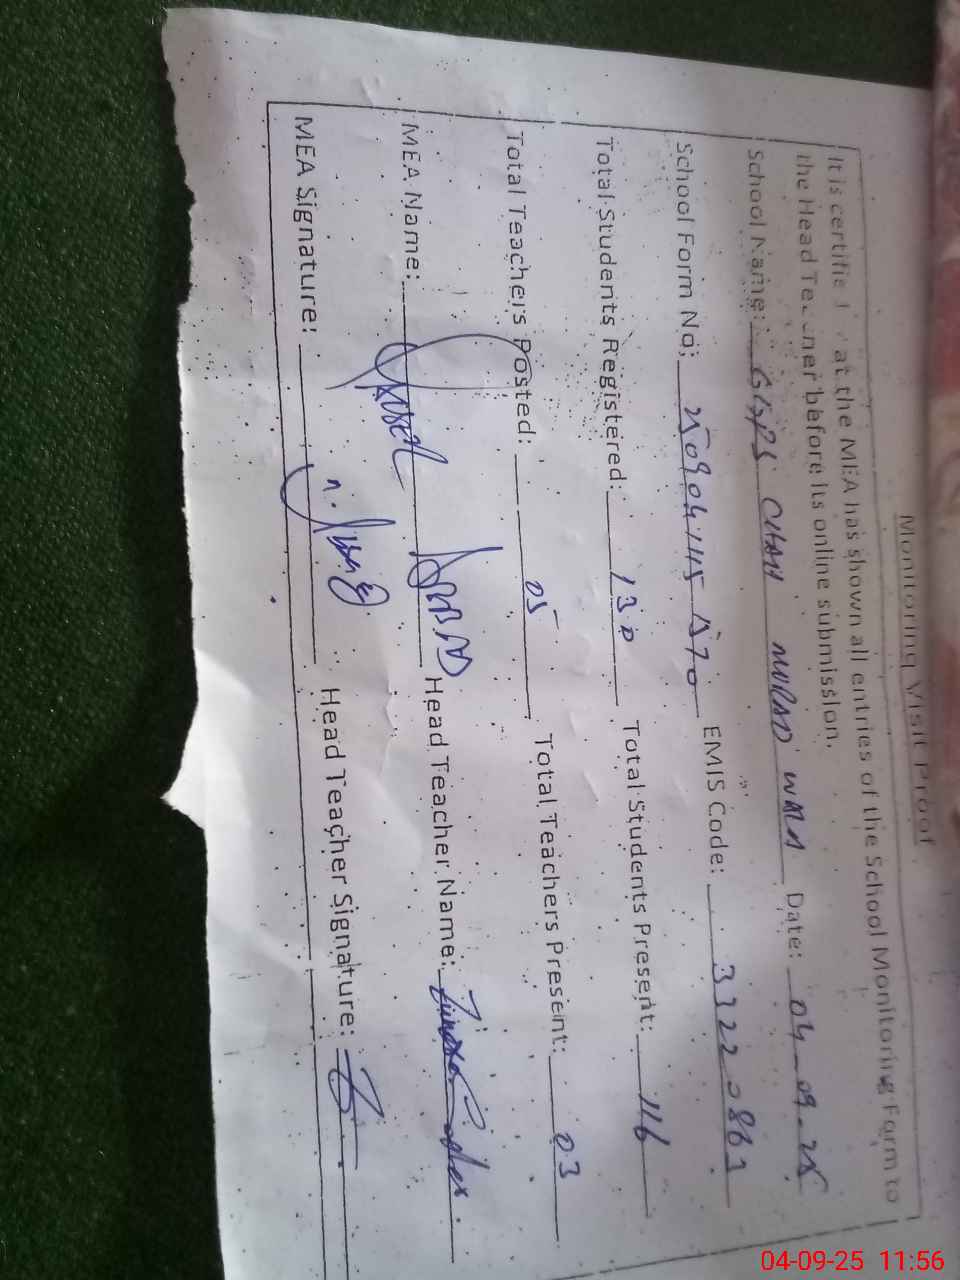 Monitoring Visit Proof
It is certified that the MEA has shown all entries of the School Monitoring Form to
the Head Teacher before its online submission.
School Name: GGPS CHAH MURAD WALA Date: 04-09-25
School Form No: 250904115 570 EMIS Code: 33220863
Total Students Registered: 130 Total Students Present: 116
Total Teachers Posted: 05 Total Teachers Present: 03
MEA Name: Head Teacher Name:
MEA Signature: Head Teacher Signature:
04-09-25 11:56